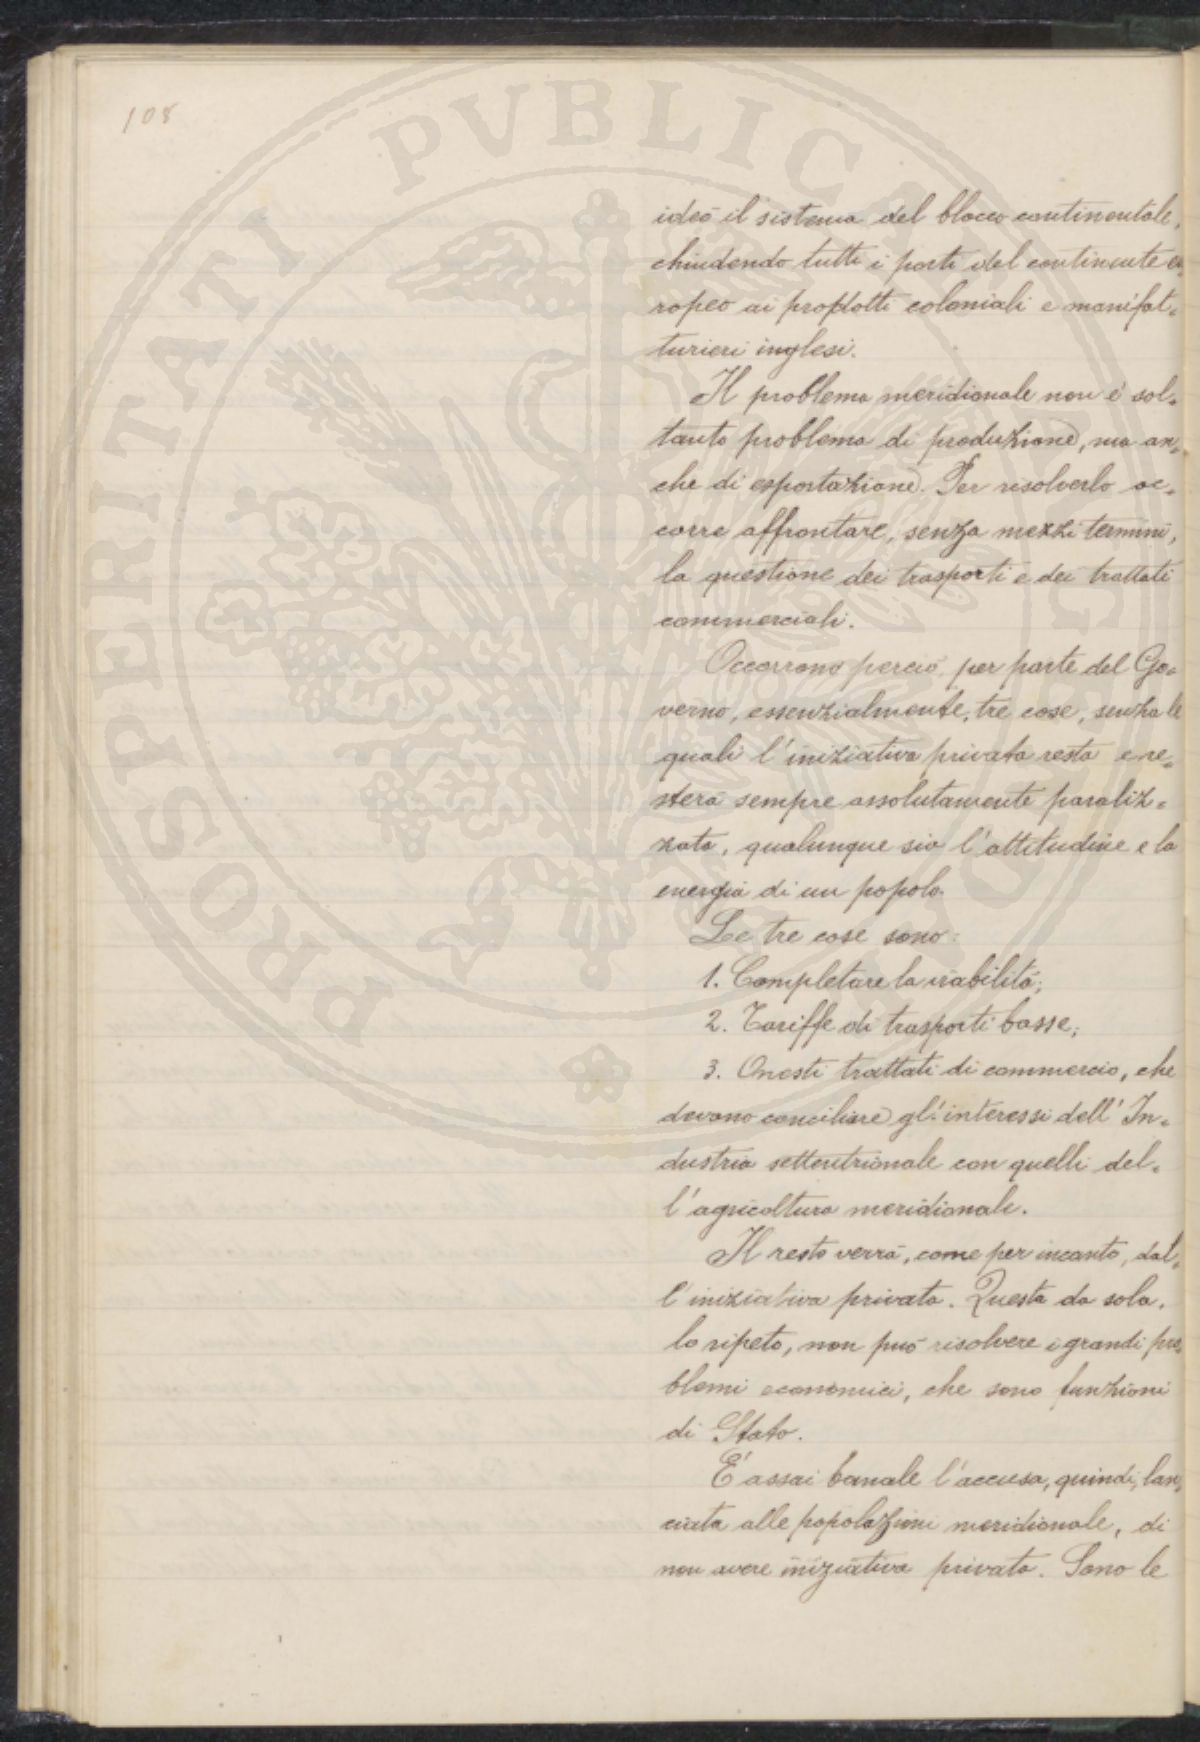 108
PROSPERITATI PVBLICAE
ideò il sistema del blocco continentale,
chiudendo tutti i porti del continente eu=
ropeo ai prodotti coloniali e manifat=
turieri inglesi.
Il problema meridionale non è sol=
tanto problema di produzione, ma an=
che di esportazione. Per risolverlo oc=
corre affrontare, senza mezzi termini,
la questione dei trasporti e dei trattati
commerciali.
Occorrono perciò per parte del Go=
verno, essenzialmente, tre cose, senza le
quali l'iniziativa privata resta e re=
sterà sempre assolutamente paraliz=
zata, qualunque sia l'attitudine e la
energia di un popolo.
Le tre cose sono:
1. Completare la viabilità;
2. Tariffe di trasporti basse;
3. Onesti trattati di commercio, che
devono conciliare gl'interessi dell'In=
dustria settentrionale con quelli del=
l'agricoltura meridionale.
Il resto verrà, come per incanto, dal=
l'iniziativa privata. Questa da sola,
lo ripeto, non può risolvere i grandi pro=
blemi economici, che sono funzioni
di Stato.
E' assai banale l'accusa, quindi, lan=
ciata alle popolazioni meridionale, di
non avere iniziativa privata. Sono le